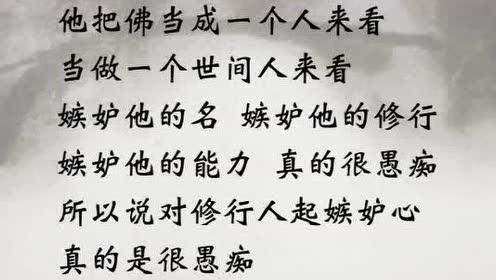 他把佛当成一个人来看
当做一个世间人来看
嫉妒他的名 嫉妒他的修行
嫉妒他的能力 真的很愚痴
所以说对修行人起嫉妒心
真的是很愚痴